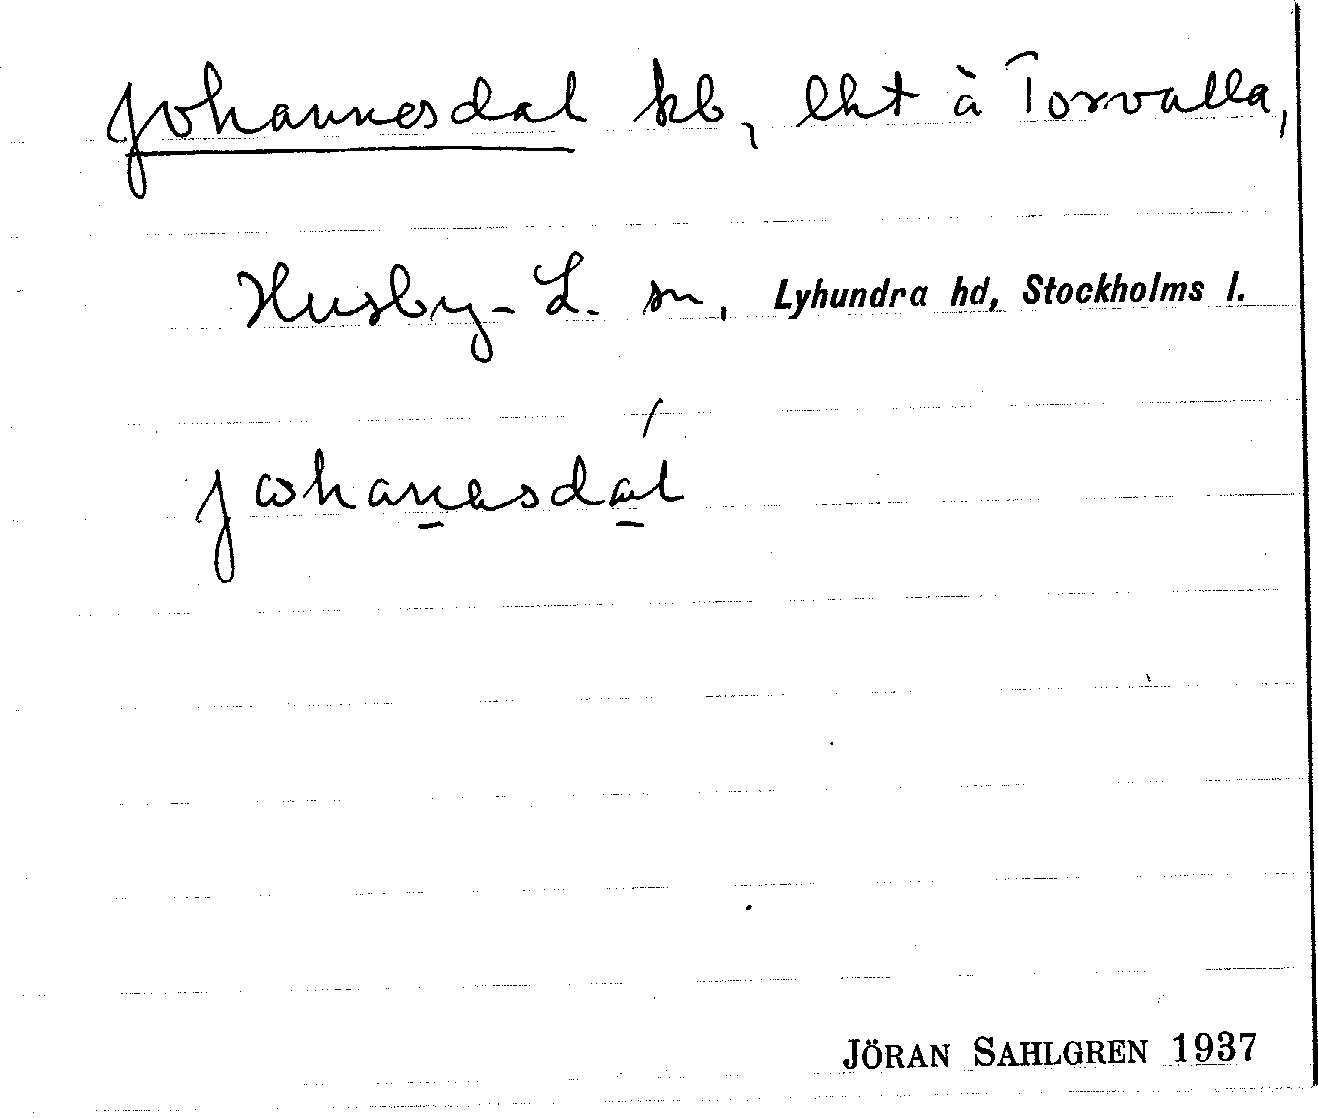 Johannesdal kb, lht à Torvalla,
Husby-L. sn, Lyhundra hd, Stockholms l.
johanesdal
JÖRAN SAHLGREN 1937